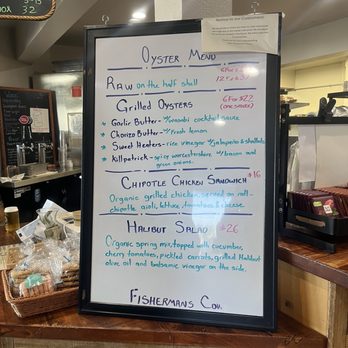 OYSTER MENU
RAW on the half shell
Grilled Oysters
6 for $22
(one sauce)
* Garlic Butter - w/wasabi cocktail sauce
* Chorizo Butter - w/fresh lemon
* Sweet Heaters - rice vinegar w/jalapeño & shallots
* Killpatrick - spicy worcestershire w/bacon and
green onions.
CHIPOTLE CHICKEN SANDWICH $16
Organic grilled chicken, served on roll -
chipotle aioli, lettuce, tomatoes & cheese.
HALIBUT SALAD $26
Organic spring mix, topped with cucumber,
cherry tomatoes, pickled carrots, grilled Halibut
olive oil and balsamic vinegar on the side.
FISHERMANS COV